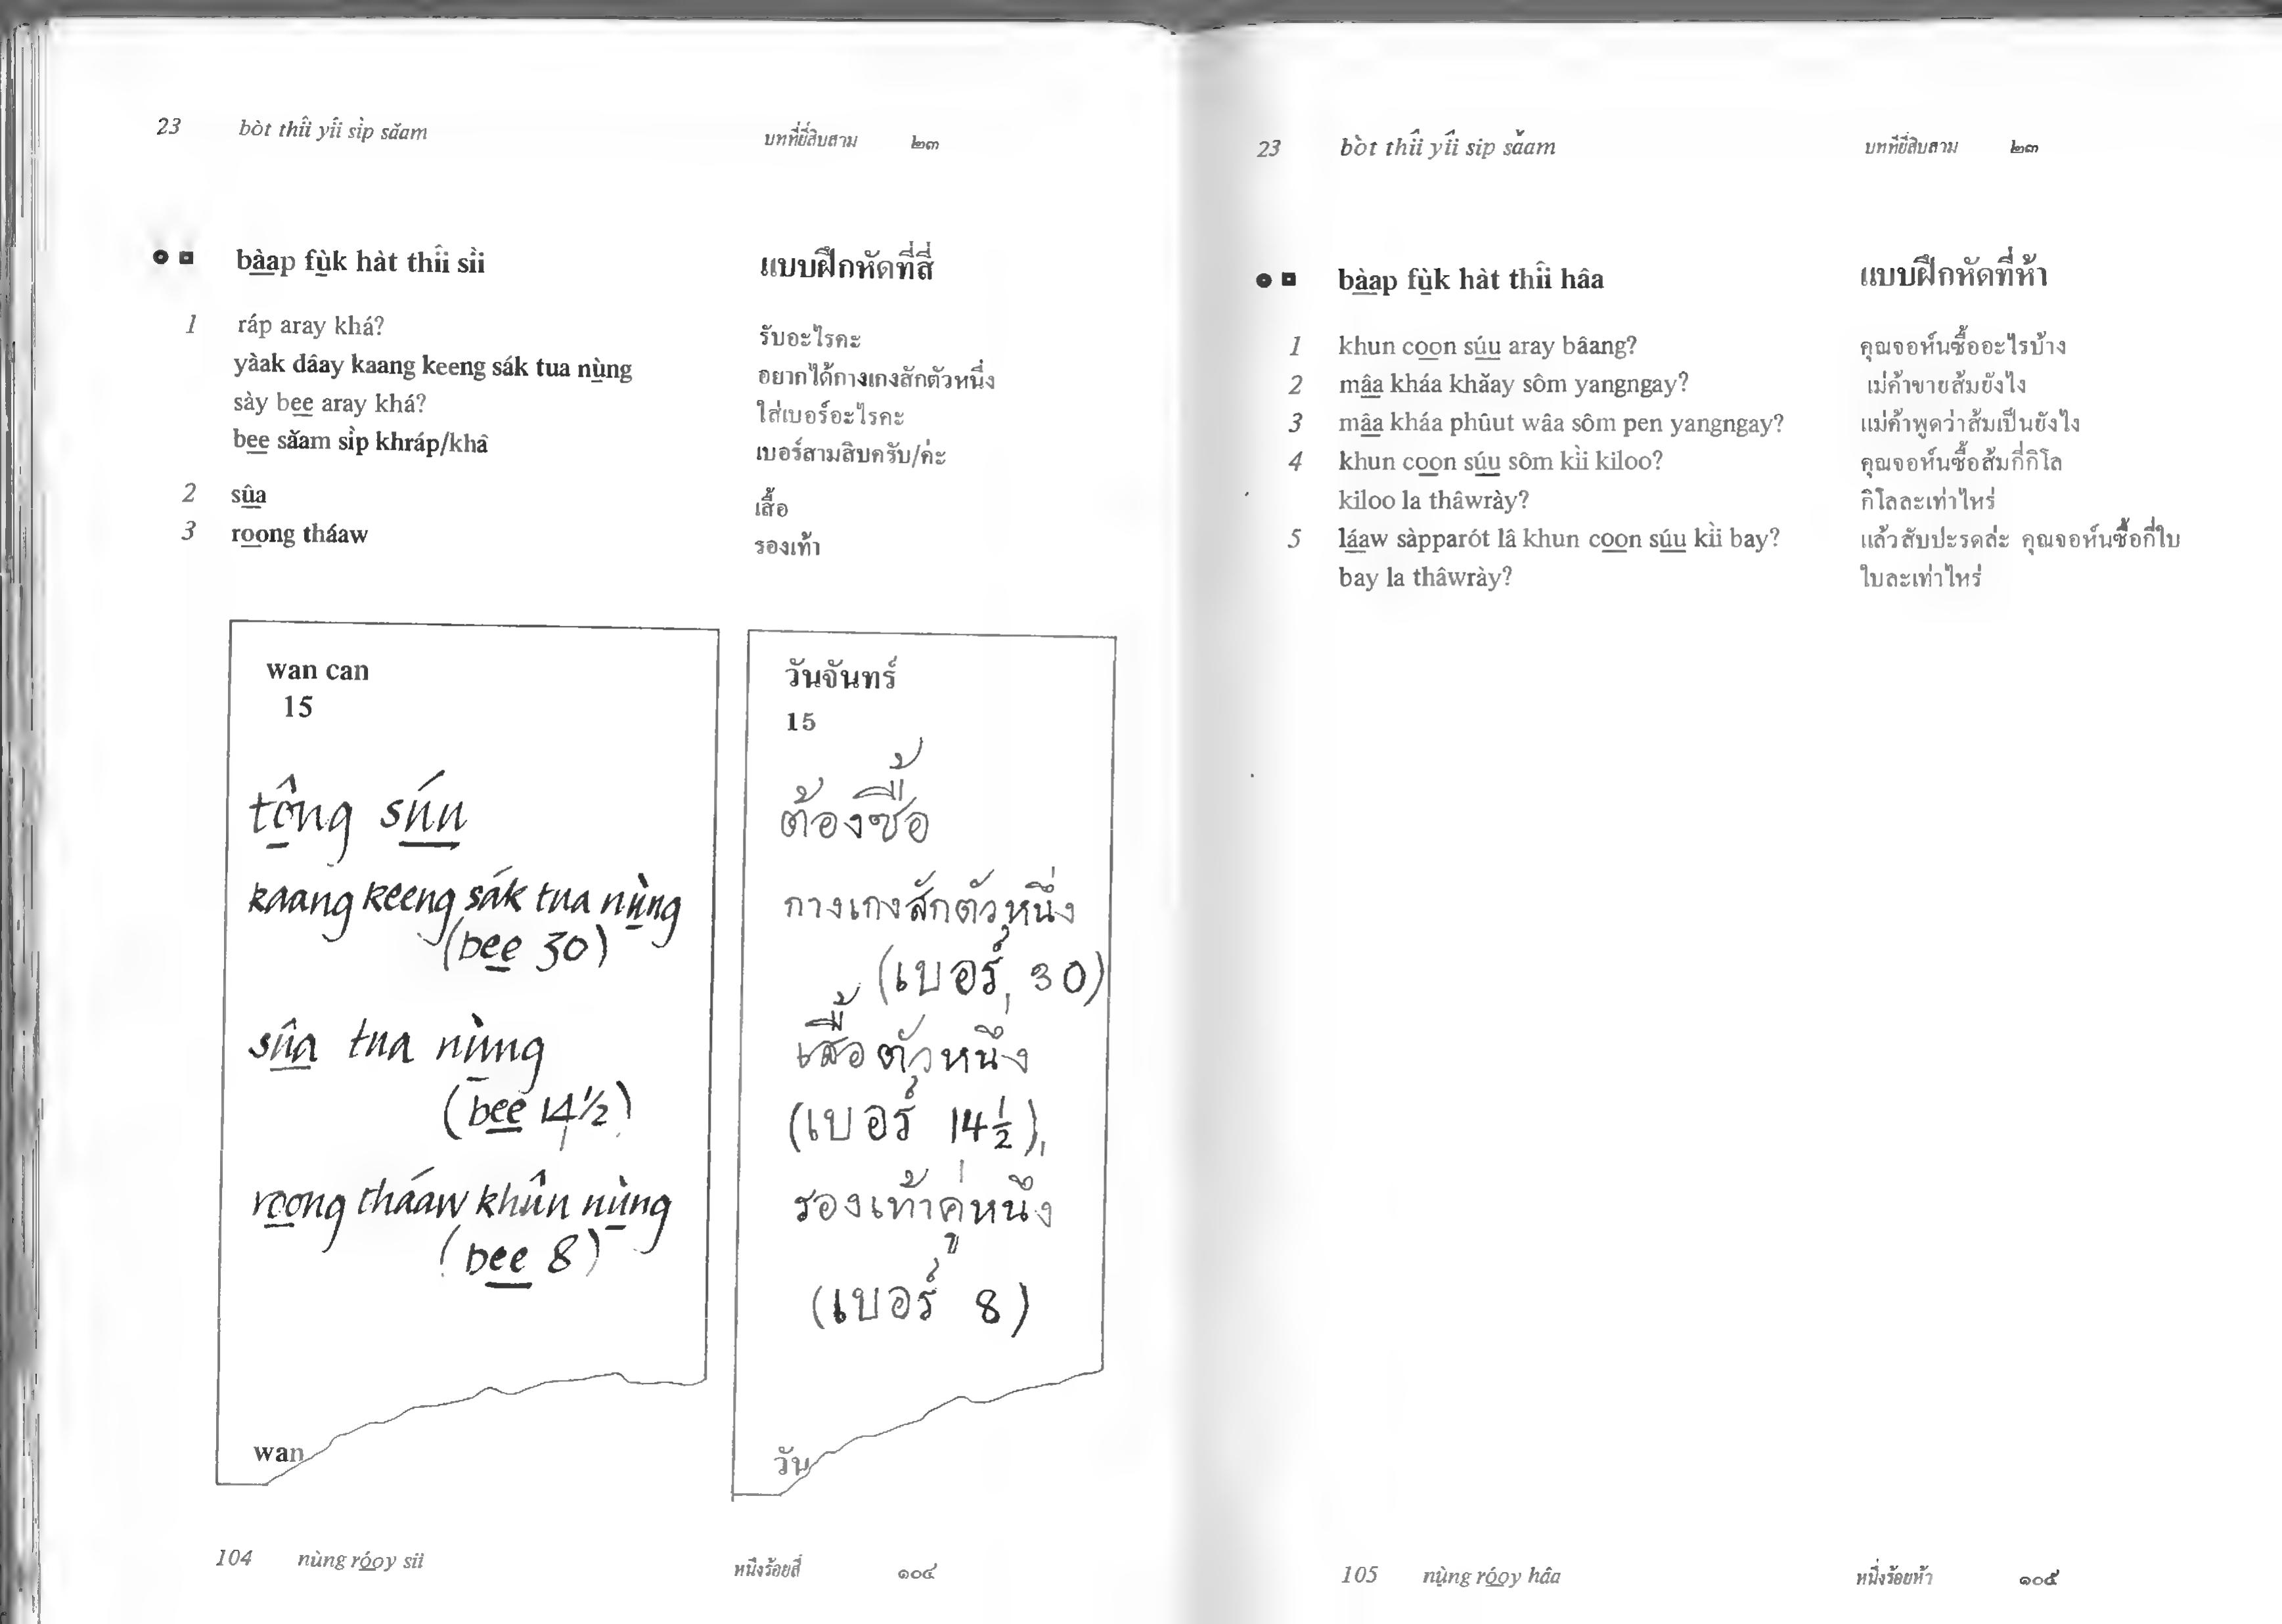 23 bòt thîi yîi sìp sǎam บทที่ยี่สิบสาม ๒๓
bàap fùk hàt thîi sìi แบบฝึกหัดที่สี่
1 ráp aray khá? รับอะไรคะ
yàak dâay kaang keeng sák tua nùng อยากได้กางเกงสักตัวหนึ่ง
sày bee aray khá? ใส่เบอร์อะไรคะ
bee sǎam sìp khráp/khâ เบอร์สามสิบครับ/ค่ะ
2 sûa เสื้อ
3 roong tháaw รองเท้า
wan can
15
tông súu
kaang keeng sák tua nùng
(bee 30)
sûa tua nùng
(bee 14½)
roong tháaw khûu nùng
(bee 8)
wan
วันจันทร์
15
ต้องซื้อ
กางเกงสักตัวหนึ่ง
(เบอร์ 30)
เสื้อตัวหนึ่ง
(เบอร์ 14½)
รองเท้าคู่หนึ่ง
(เบอร์ 8)
วัน
104 nùng róoy sìi หนึ่งร้อยสี่ ๑๐๔
23 bòt thîi yîi sip sǎam บทที่ยี่สิบสาม ๒๓
bàap fùk hàt thîi hâa แบบฝึกหัดที่ห้า
1 khun coon súu aray bâang? คุณจอห์นซื้ออะไรบ้าง
2 mâa kháa khǎay sôm yangngay? แม่ค้าขายส้มยังไง
3 mâa kháa phûut wâa sôm pen yangngay? แม่ค้าพูดว่าส้มเป็นยังไง
4 khun coon súu sôm kìi kiloo? คุณจอห์นซื้อส้มกี่กิโล
kiloo la thâwrày? กิโลละเท่าไหร่
5 láaw sàpparót lâ khun coon súu kìi bay? แล้วสับปะรดล่ะ คุณจอห์นซื้อกี่ใบ
bay la thâwrày? ใบละเท่าไหร่
105 nùng róoy hâa หนึ่งร้อยห้า ๑๐๕